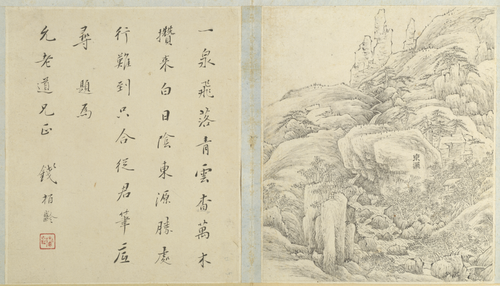 東源
一泉落青雲杳萬木
攢來白日陰東源勝處
行難到只合從君筆底
尋 題為
允老道兄正 錢柏齡